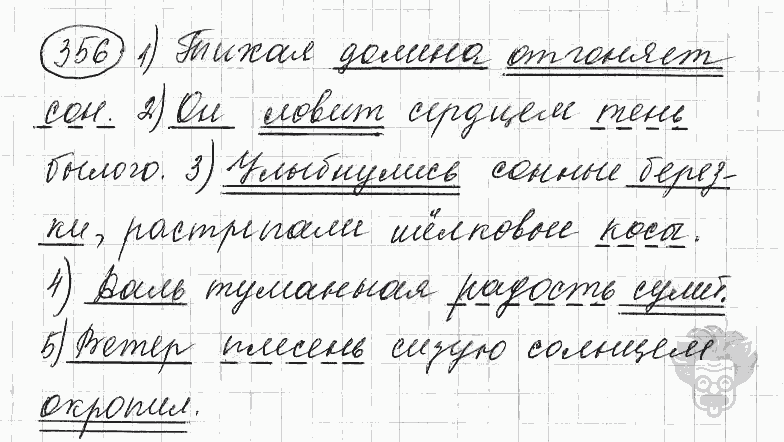 356 1) Тихая долина отгоняет
сон. 2) Он ловит сердцем тень
былого. 3) Улыбнулись сонные берез-
ки, растрепали шёлковые косы.
4) Даль туманная радость сулит.
5) Ветер плесень сизую солнцем
окропил.